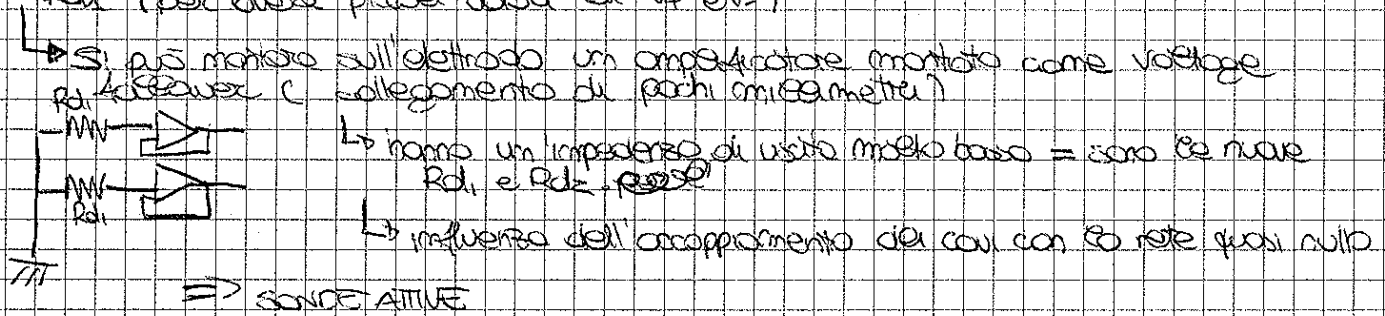 ↳ Si può montare sull'elettrodo un amplificatore montato come voltage
follower ( collegamento di pochi millimetri)
Rd1
↳ hanno un'impedenza di uscita molto bassa = sono le nuove
Rd1 e Rd2
Rd1
↳ influenza dell'accoppiamento dei cavi con la rete quasi nulla
=> SONDE ATTIVE